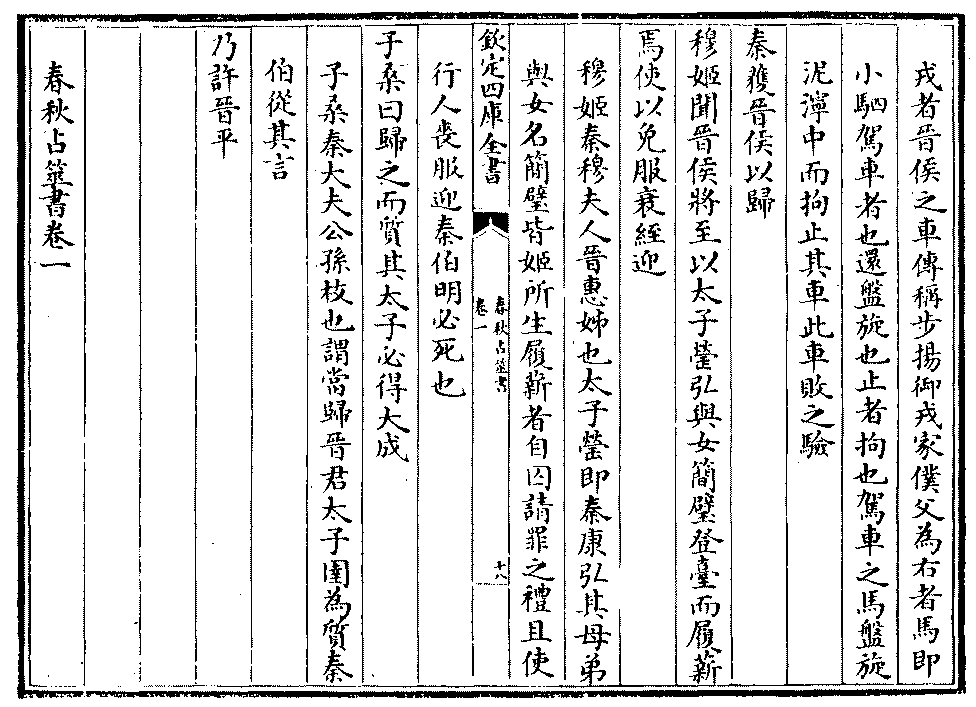 戎者晉侯之車傳稱步揚御戎家僕父為右者馬即
小駟駕車者也還盤旋也止者拘也駕車之馬盤旋
泥濘中而拘止其車此車敗之驗
秦獲晉侯以歸
穆姬聞晉侯將至以太子罃弘與女簡璧登臺而履薪
焉使以免服衰絰迎
穆姬秦穆夫人晉惠姊也太子罃即秦康弘其母弟
與女名簡璧皆姬所生履薪者自囚請罪之禮且使
欽定四庫全書
春秋占筮書
卷一
十八
行人喪服迎秦伯明必死也
子桑曰歸之而質其太子必得大成
子桑秦大夫公孫枝也謂當歸晉君太子圉為質秦
伯從其言
乃許晉平
春秋占筮書卷一